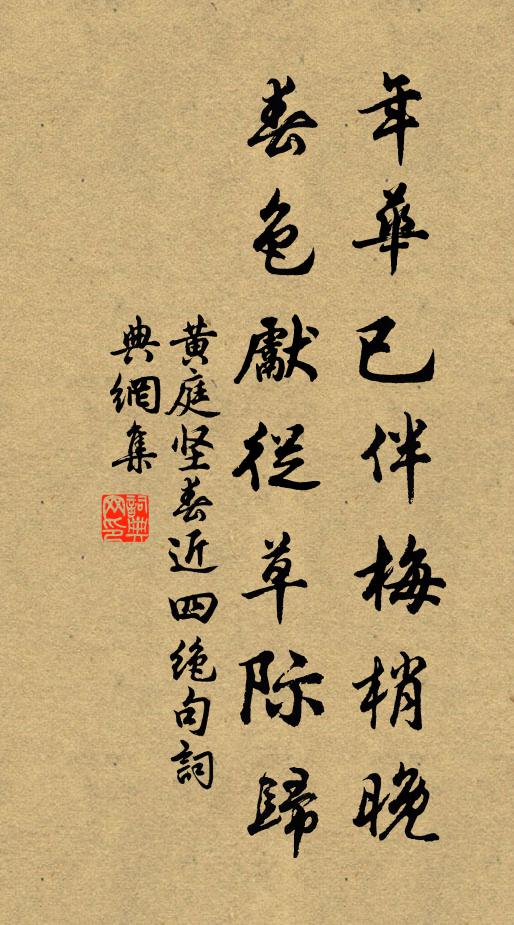 年華已伴梅梢晚
春色獻從草际歸
黄庭坚春近四绝句詞
典網集
詞典網印